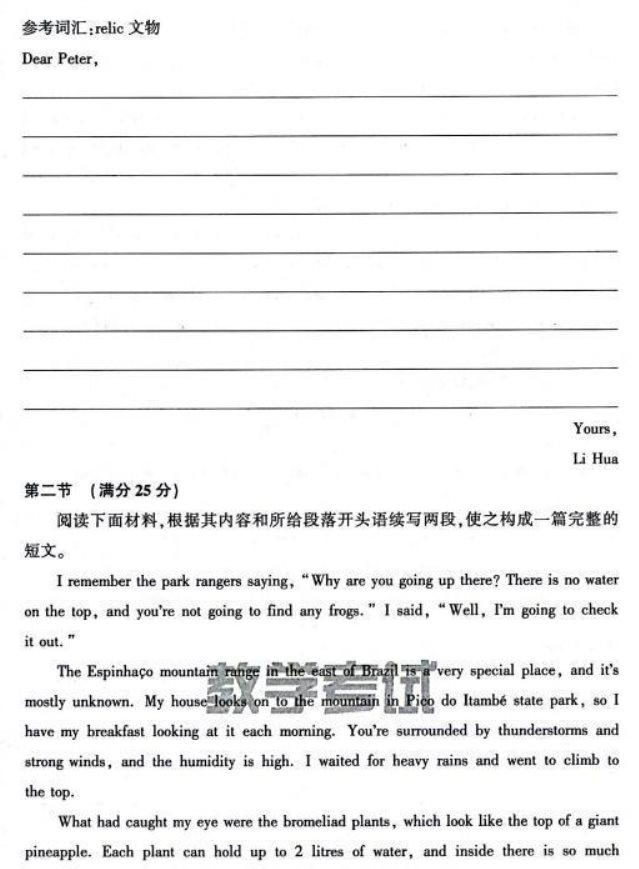 参考词汇:relic 文物
Dear Peter,
Yours,
Li Hua
第二节 (满分 25 分)
阅读下面材料,根据其内容和所给段落开头语续写两段,使之构成一篇完整的
短文。
I remember the park rangers saying, “Why are you going up there? There is no water
on the top, and you're not going to find any frogs.” I said, “Well, I'm going to check
it out.”
The Espinhaço mountain range in the east of Brazil is a very special place, and it's
mostly unknown. My house looks on to the mountain in Pico do Itambé state park, so I
have my breakfast looking at it each morning. You're surrounded by thunderstorms and
strong winds, and the humidity is high. I waited for heavy rains and went to climb to
the top.
What had caught my eye were the bromeliad plants, which look like the top of a giant
pineapple. Each plant can hold up to 2 litres of water, and inside there is so much
教学考试